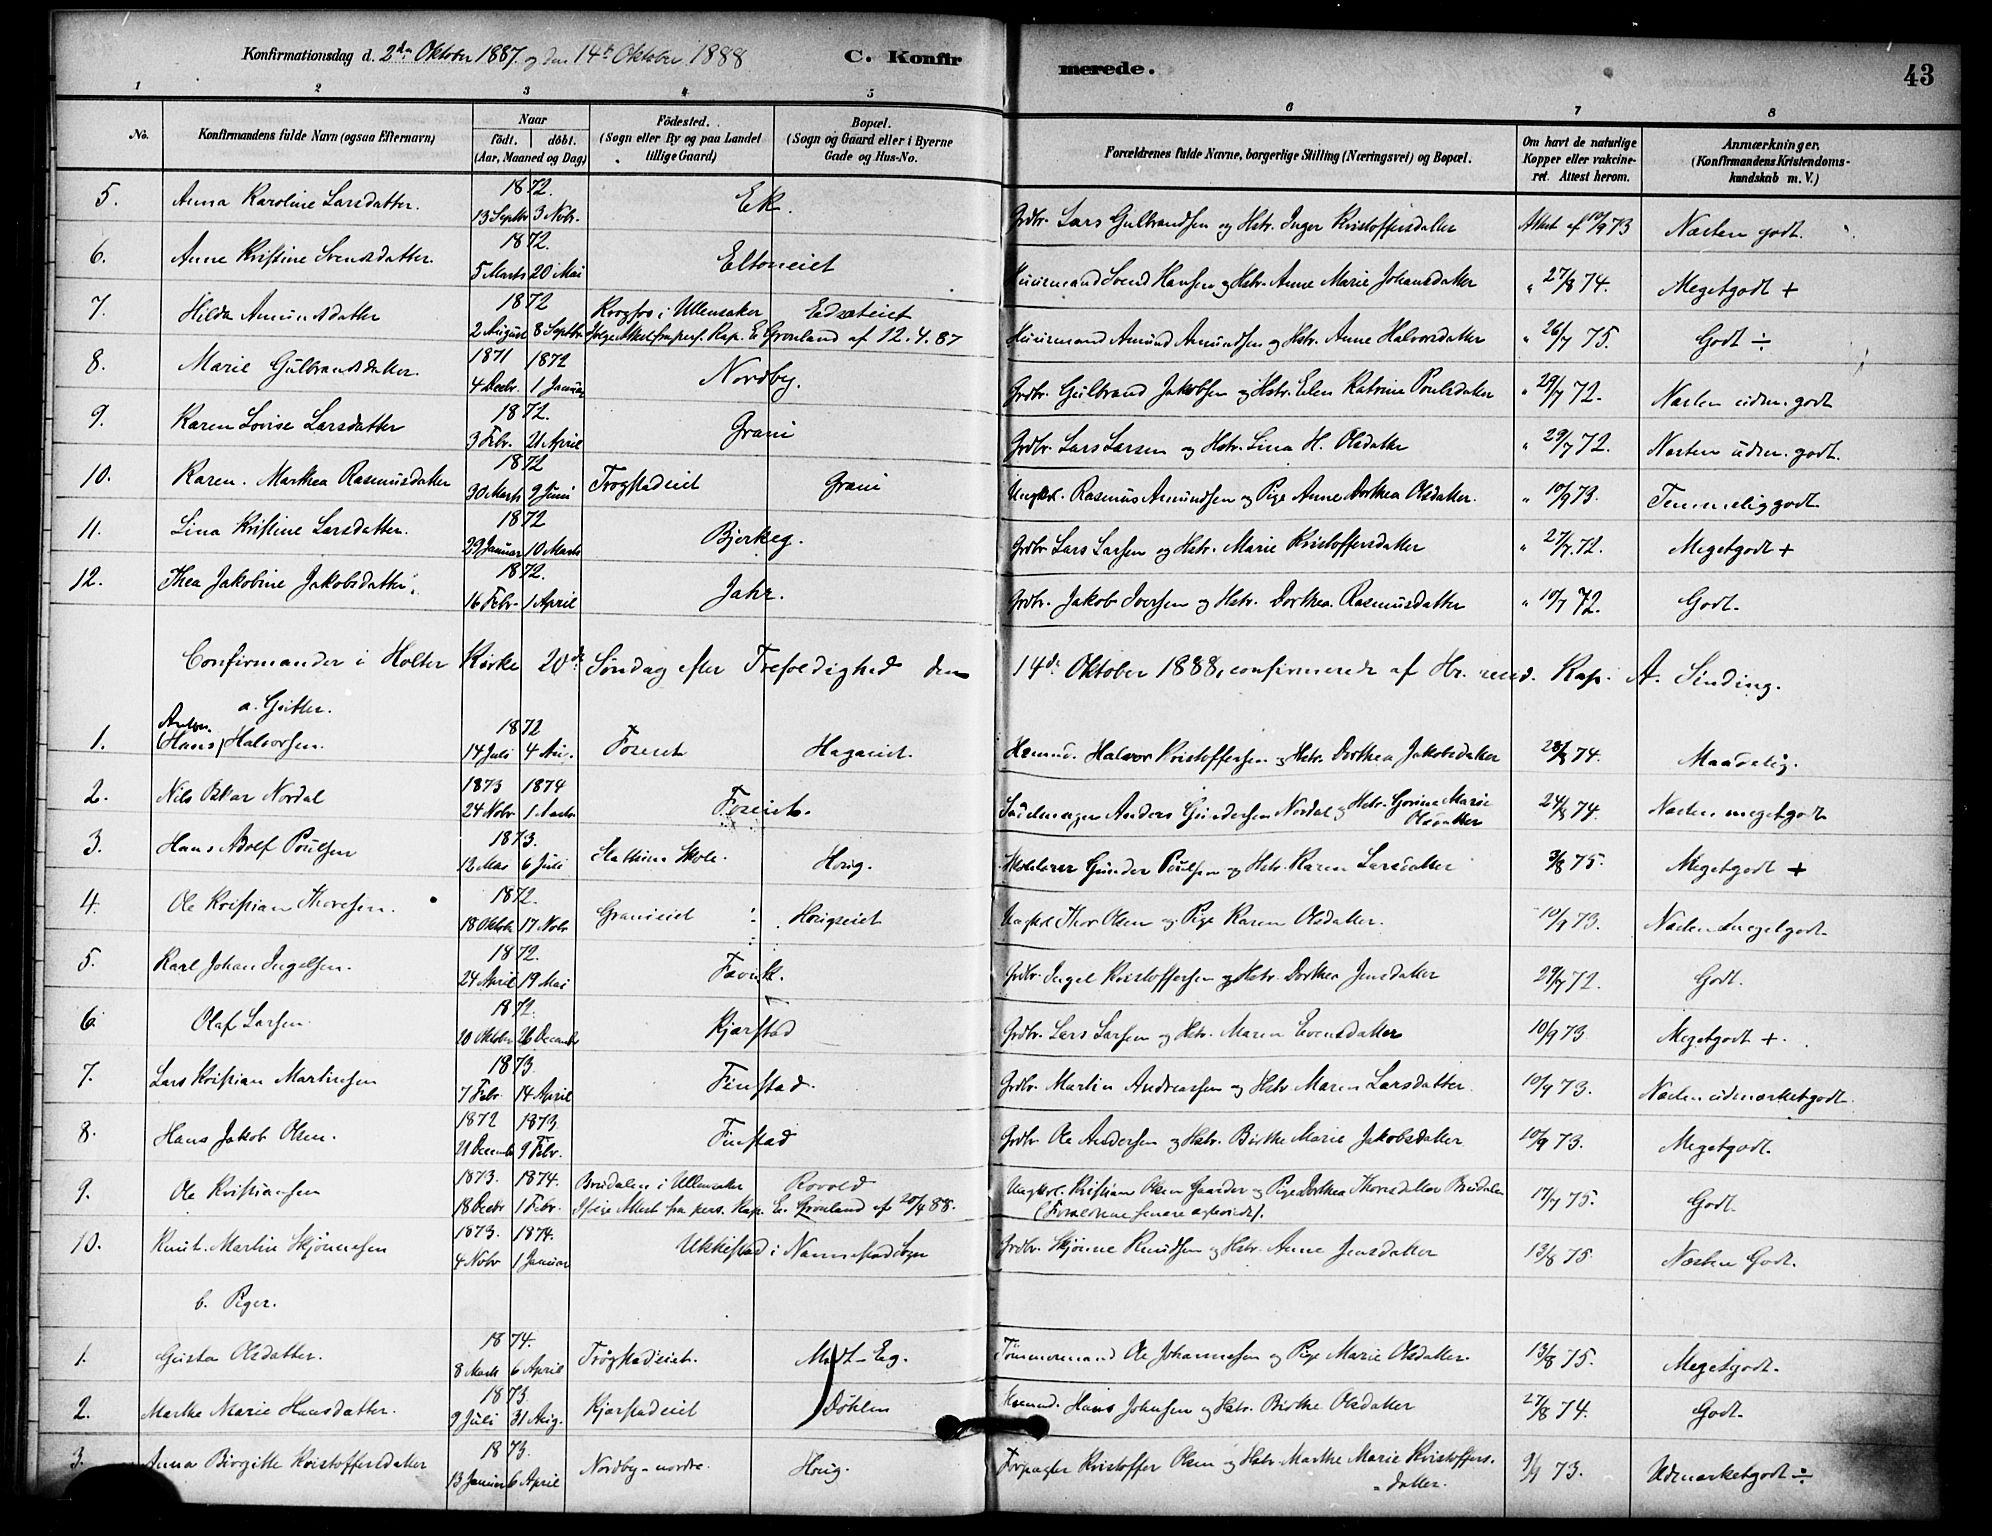 Konfirmationsdag d. 2den Oktober 1887. og den 14de Oktober 1888
C. Konfirmerede.
43
1 2 3 4 5 6 7 8
No.
Konfirmandens fulde Navn (ogsaa Efternavn)
Naar
födt. döbt.
(Aar, Maaned og Dag)
Födested.
(Sogn eller By og paa Landet
tillige Gaard)
Bopæl.
(Sogn og Gaard eller i Byerne
Gade og Hus-No.
Forældrenes fulde Navne, borgerlige Stilling (Næringsvei) og Bopæl.
Om havt de naturlige
Kopper eller vakcine-
ret. Attest herom.
Anmærkninger.
(Konfirmandens Kristendoms-
kundskab m. V.)
5. Anna Karoline Larsdatter. 1872. 13 Septbr 3 Nvbr. Ek. Grdbr. Lars Gulbrandsen og Hstr. Inger Kristoffersdatter Attest af 10/9 73 Næsten godt.
6. Anne Kristine Svendsdatter. 1872. 5 Marts 20 Mai Eltoneiet Huusmand Svend Hansen og Hstr. Anne Marie Johansdatter " 27/8 74. Megetgodt +
7. Hilda Amundsdatter 1872 2 August 8 Septbr. Kragfos i Ullensaker Eidsateiet Huusmand Amund Amundsen og Hstr. Anne Halvorsdatter " 26/7 75. Godt ÷
Ifølge Attest fra pers. Kap. E. Grønland af 12.4.87
8. Marie Gulbrandsdatter. 1871 1872 4 Decbr. 1 Januar Nordby. Grdbr. Gulbrand Jakobsen og Hstr. Elen Katrine Poulsdatter " 29/7 72. Næsten udm. godt
9. Karen Lovise Larsdatter 1872. 3 Febr. 21 April Grani Grdbr. Lars Larsen og Hstr. Lina H. Olsdatter " 29/7 72. Næsten udm. godt.
10. Karen Marthea Rasmusdatter 1872 30 Marts 9 Juni Trøgstadeiet Grani Ungkrl. Rasmus Amundsen og Pige Anne Dorthea Olsdatter. " 10/9 73. Temmelig godt
11. Lina Kristine Larsdatter. 1872 29 Januar 10 Marts Bjerkeg. Grdbr Lars Larsen og Hstr. Marie Kristoffersdatter " 27/7 72. Megetgodt +
12. Thea Jakobine Jakobsdatter. 1872. 16 Febr. 1 April Jahr. Grdbr. Jakob Iversen og Hstr. Dorthea Rasmusdatter " 10/7 72. Godt.
Confirmander i Holter Kirke 20de Søndag efter Trefoldighed den 14de Oktober 1888, confirmerede af Hr. resid. Kap. A. Sinding.
a. Gutter.
1. Anton (Hans) Halvorsen. 1872 14 Juli 4 Au. Foseiet Hagaeiet. Hsmnd. Halvor Kristoffersen og Hstr. Dorthea Jakobsdatter 28/8 74. Maadelig.
2. Nils Nordal 1873 1874 24 Novbr 1 Foseiet. Anders Gundersen Nordal og Hstr. Gorine Marie Olsdatter 24/8 74. Næsten megetgodt
3. Hans Adolf Poulsen 1873. 12 Mai 6 Juli Skole. Houg. Skolelærer Gunder Poulsen og Hstr. Karen Larsdatter 3/8 75. Megetgodt +
4. Ole Kristian Thoresen. 1872. 18 Oktob 17 Novbr Granieiet Hougseiet Ungkrl Thor Olsen og Pige Karen Olsdatter. 10/9 73. Næsten megetgodt.
5. Karl Johan Ingelsen. 1872. 24 April 19 Mai Favik. Grdbr. Ingel Kristoffersen og Hstr. Dorthea Jensdatter 29/7 72. Godt.
6. Olaf Larsen. 1872. 20 Oktober 26 December Kjærstad Grdbr. Lars Larsen og Hstr. Maren Evensdatter 10/9 73 Megetgodt +.
7. Lars Kristian Martinsen 1873. 7 Febr. 14 April Finstad. Grdbr. Martin Andreassen og Hstr Maren Larsdatter. 10/9 73. Næsten udmærketgodt.
8. Hans Jakob Olsen. 1872 1873 21 Decemb 9 Febr. Finstad Grdbr Ole Andersen og Hstr. Birthe Marie Jakobsdatter 10/9 73. Megetgodt.
9. Ole Kristiansen 1873. 1874. 18 Decbr 1 Febr. Brudalen i Ullensaker Rovold Ungkrl. Kristian Olsen Gaarder og Pige Dorthea Thorsdatter Brudalen 17/7 75. Godt
Ifølge Attest fra pers. Kap. E. Grønland af 20/4 88. (Forældrene senere ægteviede).
10. Knut Martin Skjønnesen 1873. 1874. 4 Novbr 1 Januar Ukkestad i Nannestad Sogn Grdbr. Skjønne Knudsen og Hstr. Anne Jensdatter 13/8 75. Næsten Godt.
b. Piger.
1. Gusta Olsdatter. 1874. 8 Marts 6 April Trøgstadeiet. Eg. Tømmermand Ole Johannesen og Pige Marie Olsdatter. 13/8 75. Megetgodt.
2. Marthe Marie Hansdatter. 1873 9 Juli 31 Aug. Kjærstadeiet Døhlen Hsmnd. Hans Johnsen og Hstr. Birthe Olsdatter 27/8 74. Godt.
3. Anna Birgitte Kristoffersdatter 1873. 13 Januar 6 April Nordby nordre. Houg. Forpagter Kristoffer Olsen og Hstr Marthe Marie Kristoffers-
datter. 9/9 73. Udmærketgodt ÷